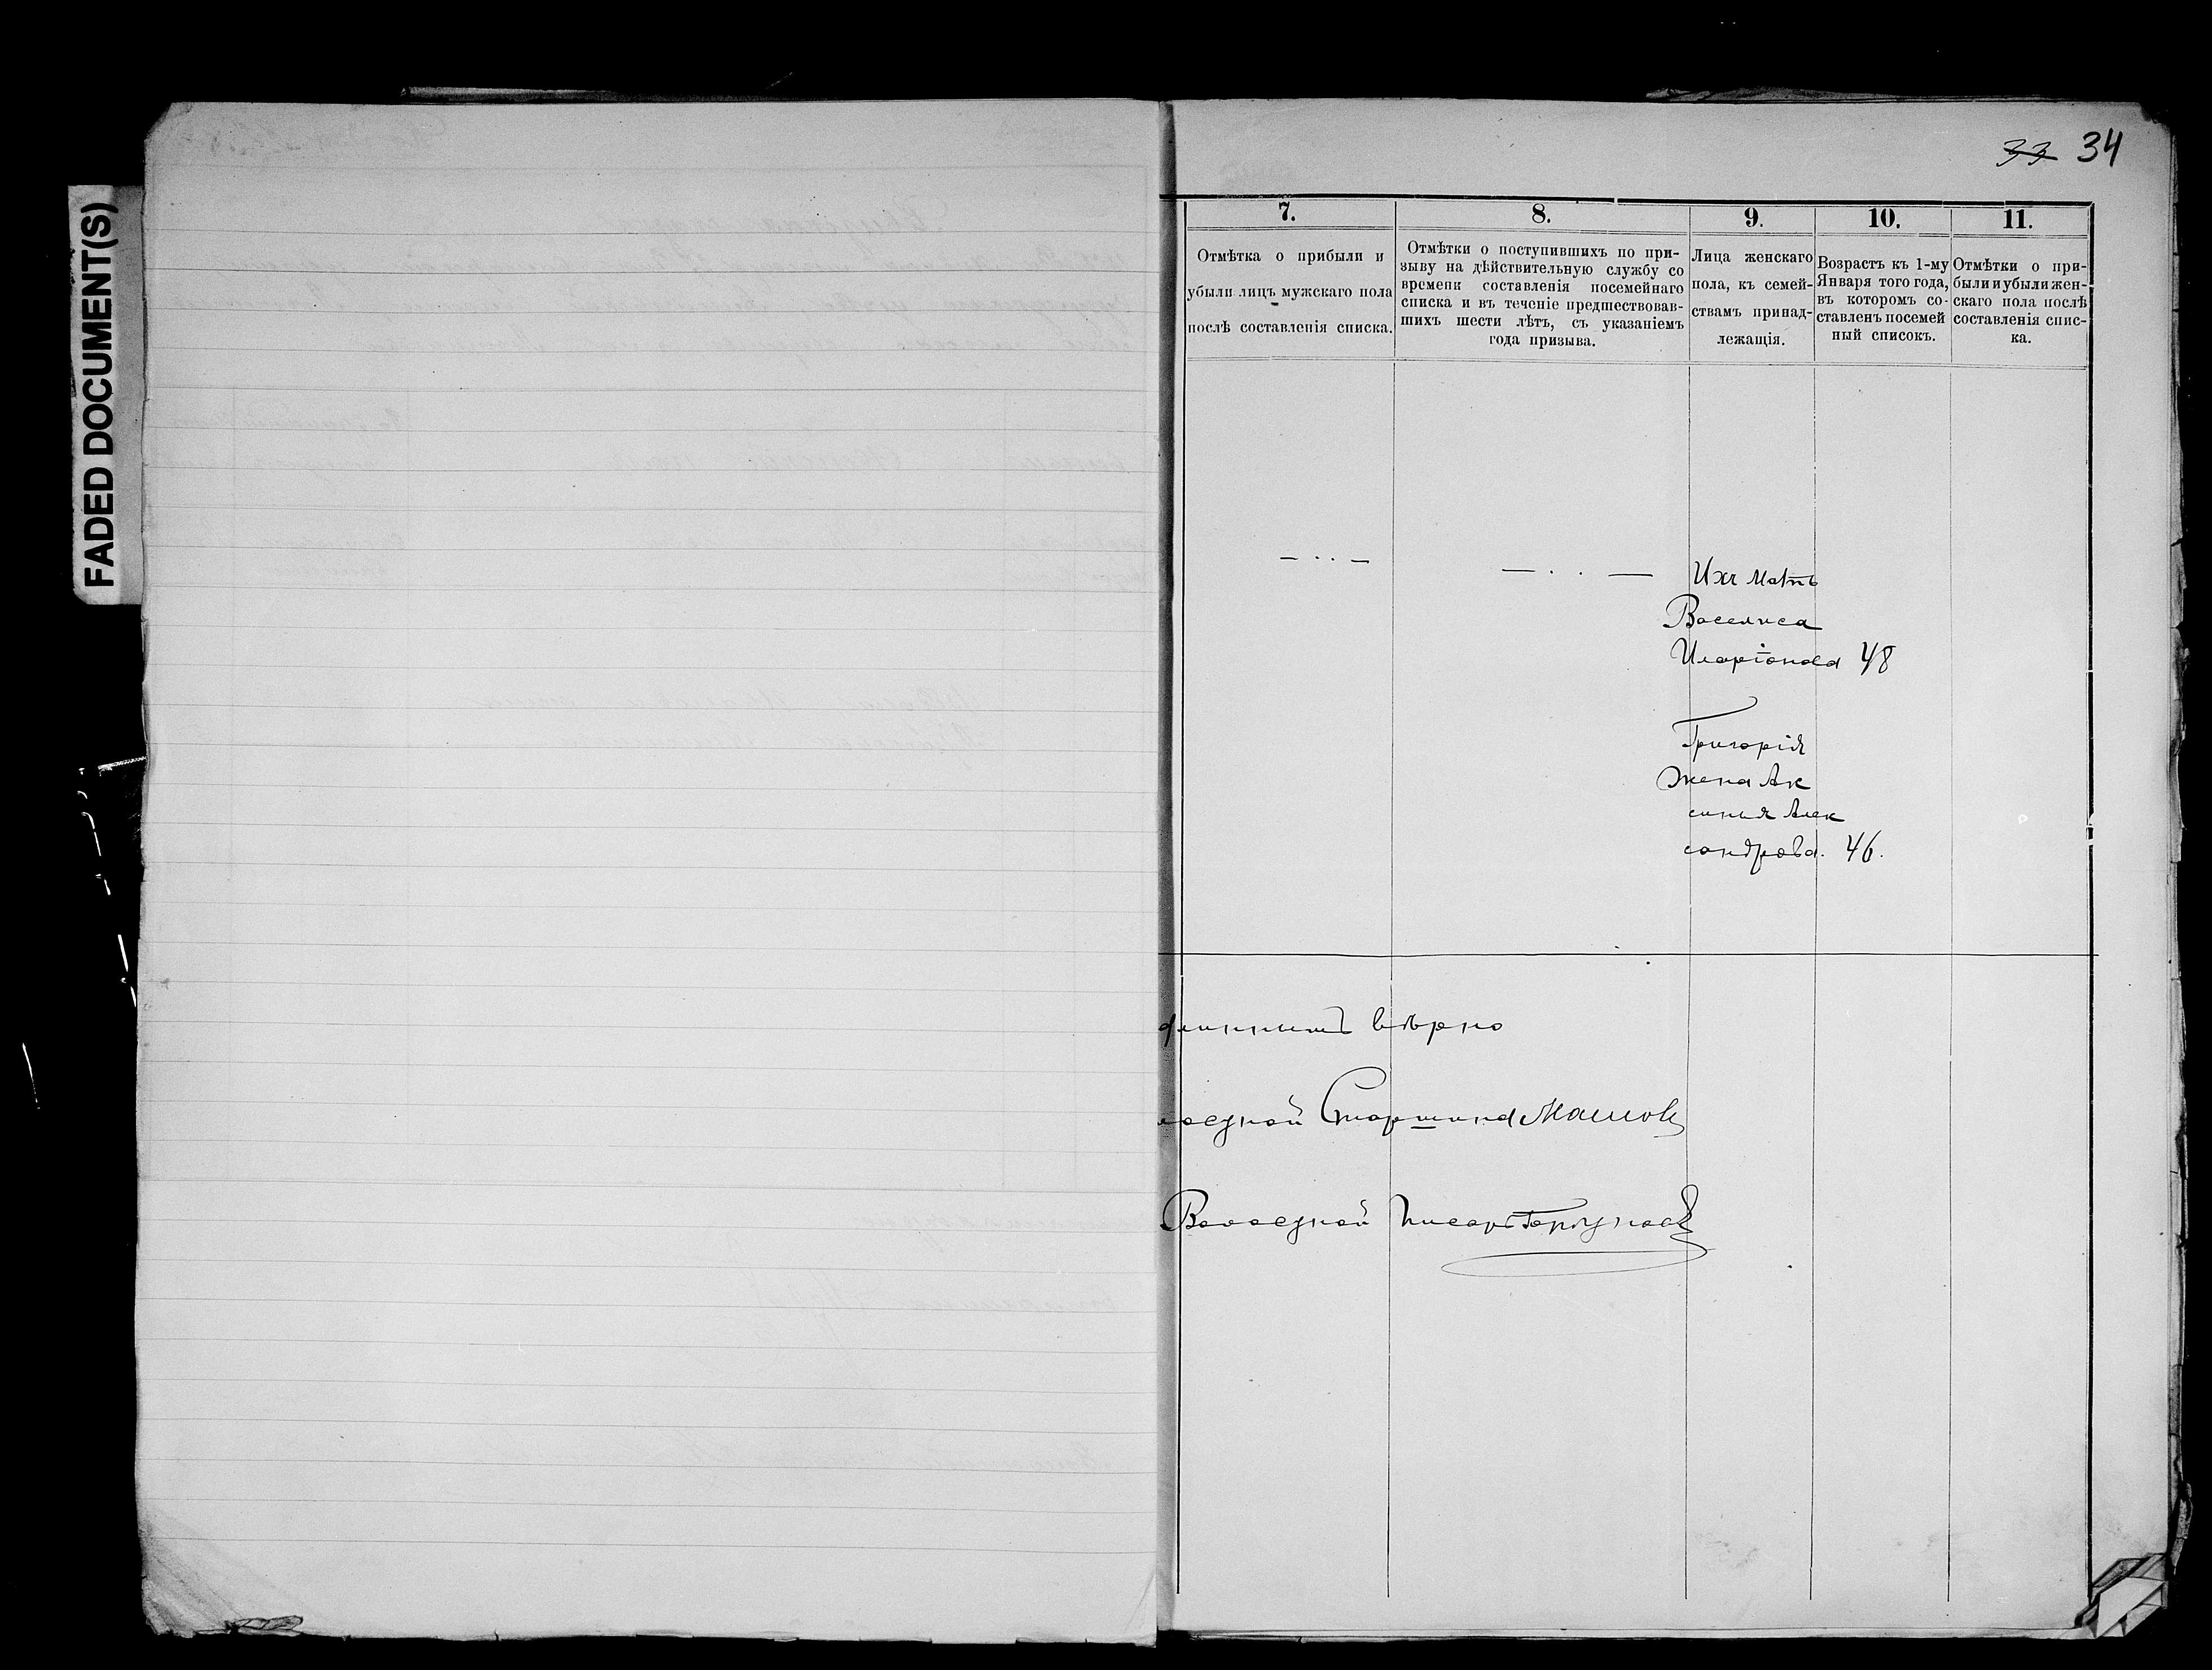 FADED DOCUMENT(S)
33 34
7.
Отмѣтка о прибыли и
убыли лицъ мужскаго пола
послѣ составленія списка.
8.
Отмѣтки о поступившихъ по при-
зыву на дѣйствительную службу со
времени составленія посемейнаго
списка и въ теченіе предшествовав-
шихъ шести лѣтъ, съ указаніемъ
года призыва.
9.
Лица женскаго
пола, къ семей-
ствамъ принад-
лежащія.
10.
Возрастъ къ 1-му
Января того года,
въ которомъ со-
ставленъ посемей
ный списокъ.
11.
Отмѣтки о при-
были и убыли жен-
скаго пола послѣ
составленія спис-
ка.
Ихъ мать
Василиса
Иларіонова 48
Григорія
жена Ак
синья Алек
сандрова. 46.
длиннымъ вѣрно
лостной Старшина
Волостной Писарь